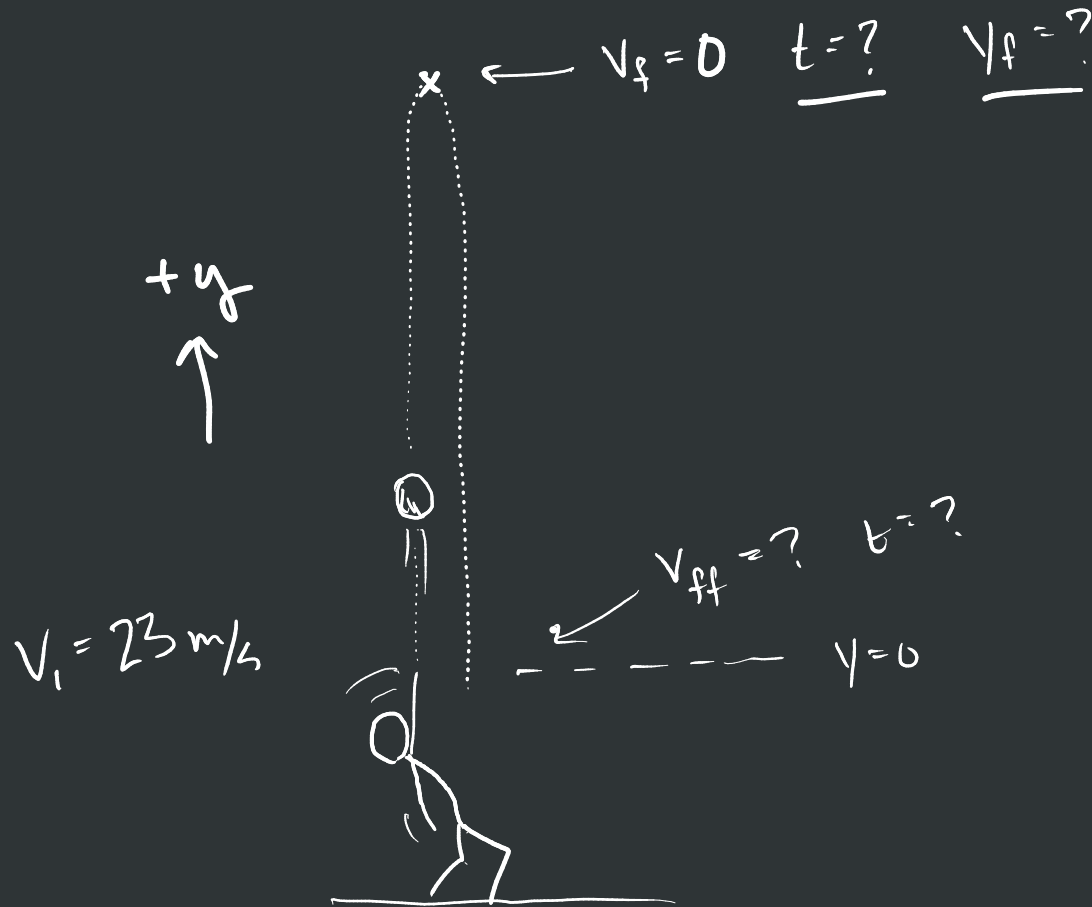 V_f = 0 t = ? y_f = ?
+y
V_ff = ? t = ?
V_1 = 23 m/s
y = 0